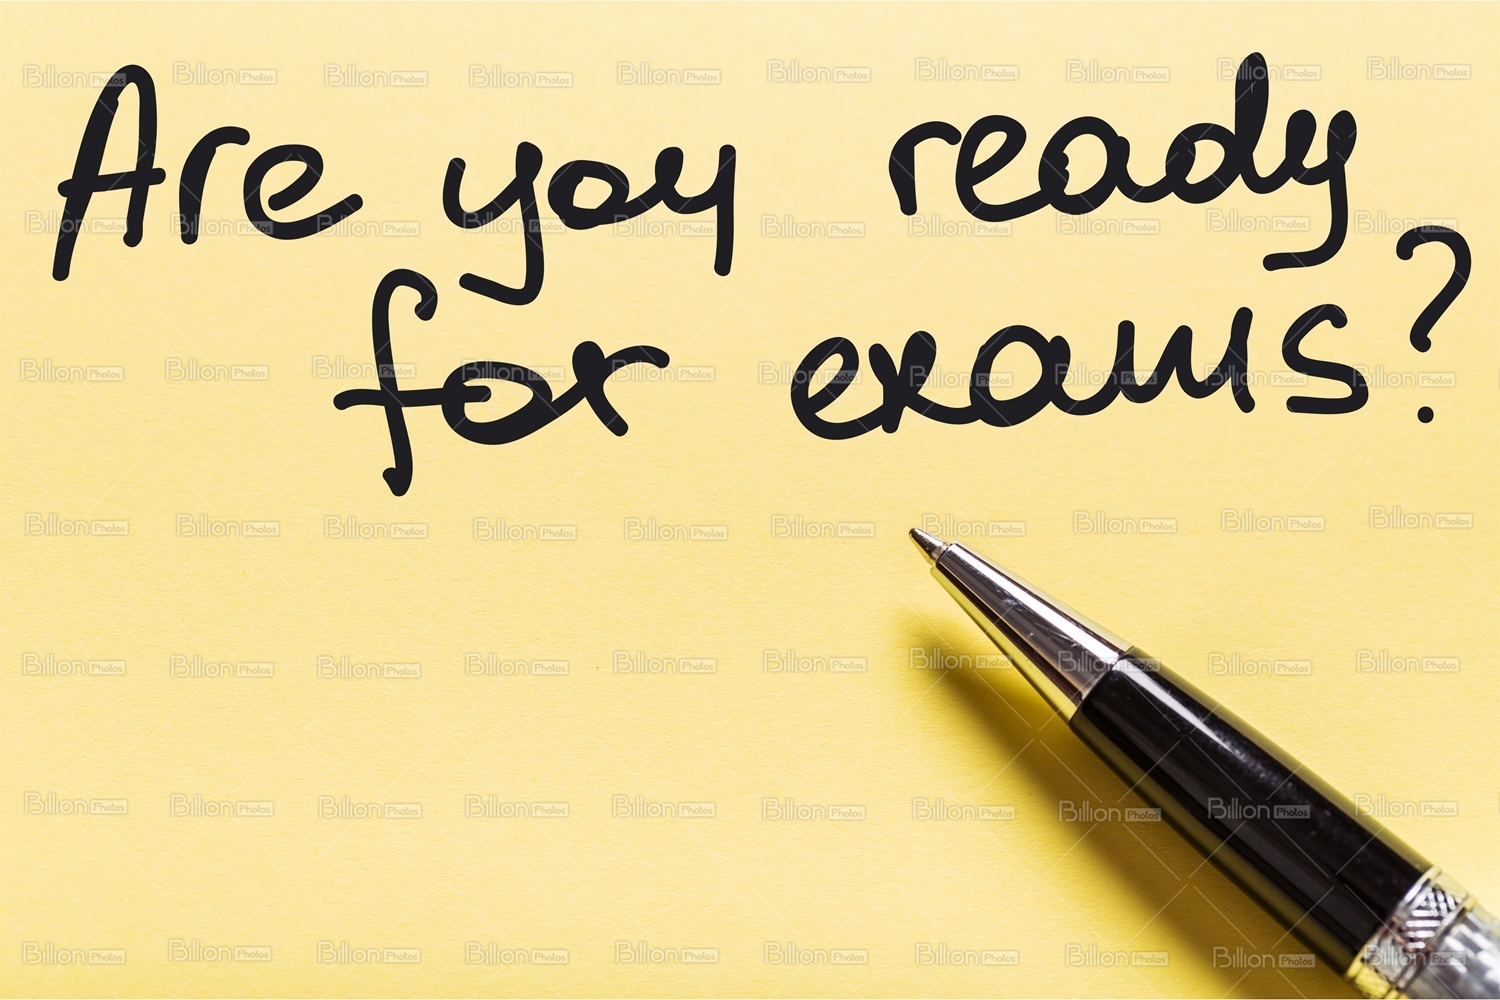 Are you ready
for exams?
Billion Photos